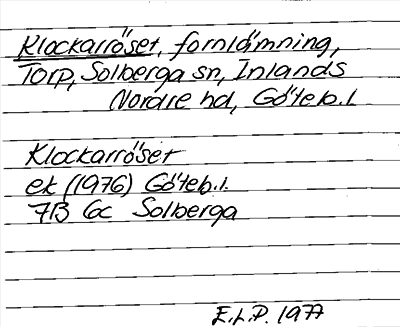 Klockarröset, fornlämning,
Torp, Solberga sn, Inlands
Nordre hd, Göteb.l.
Klockarröset
ek (1976) Göteb.l.
7B 6c Solberga
E.L.P. 1977